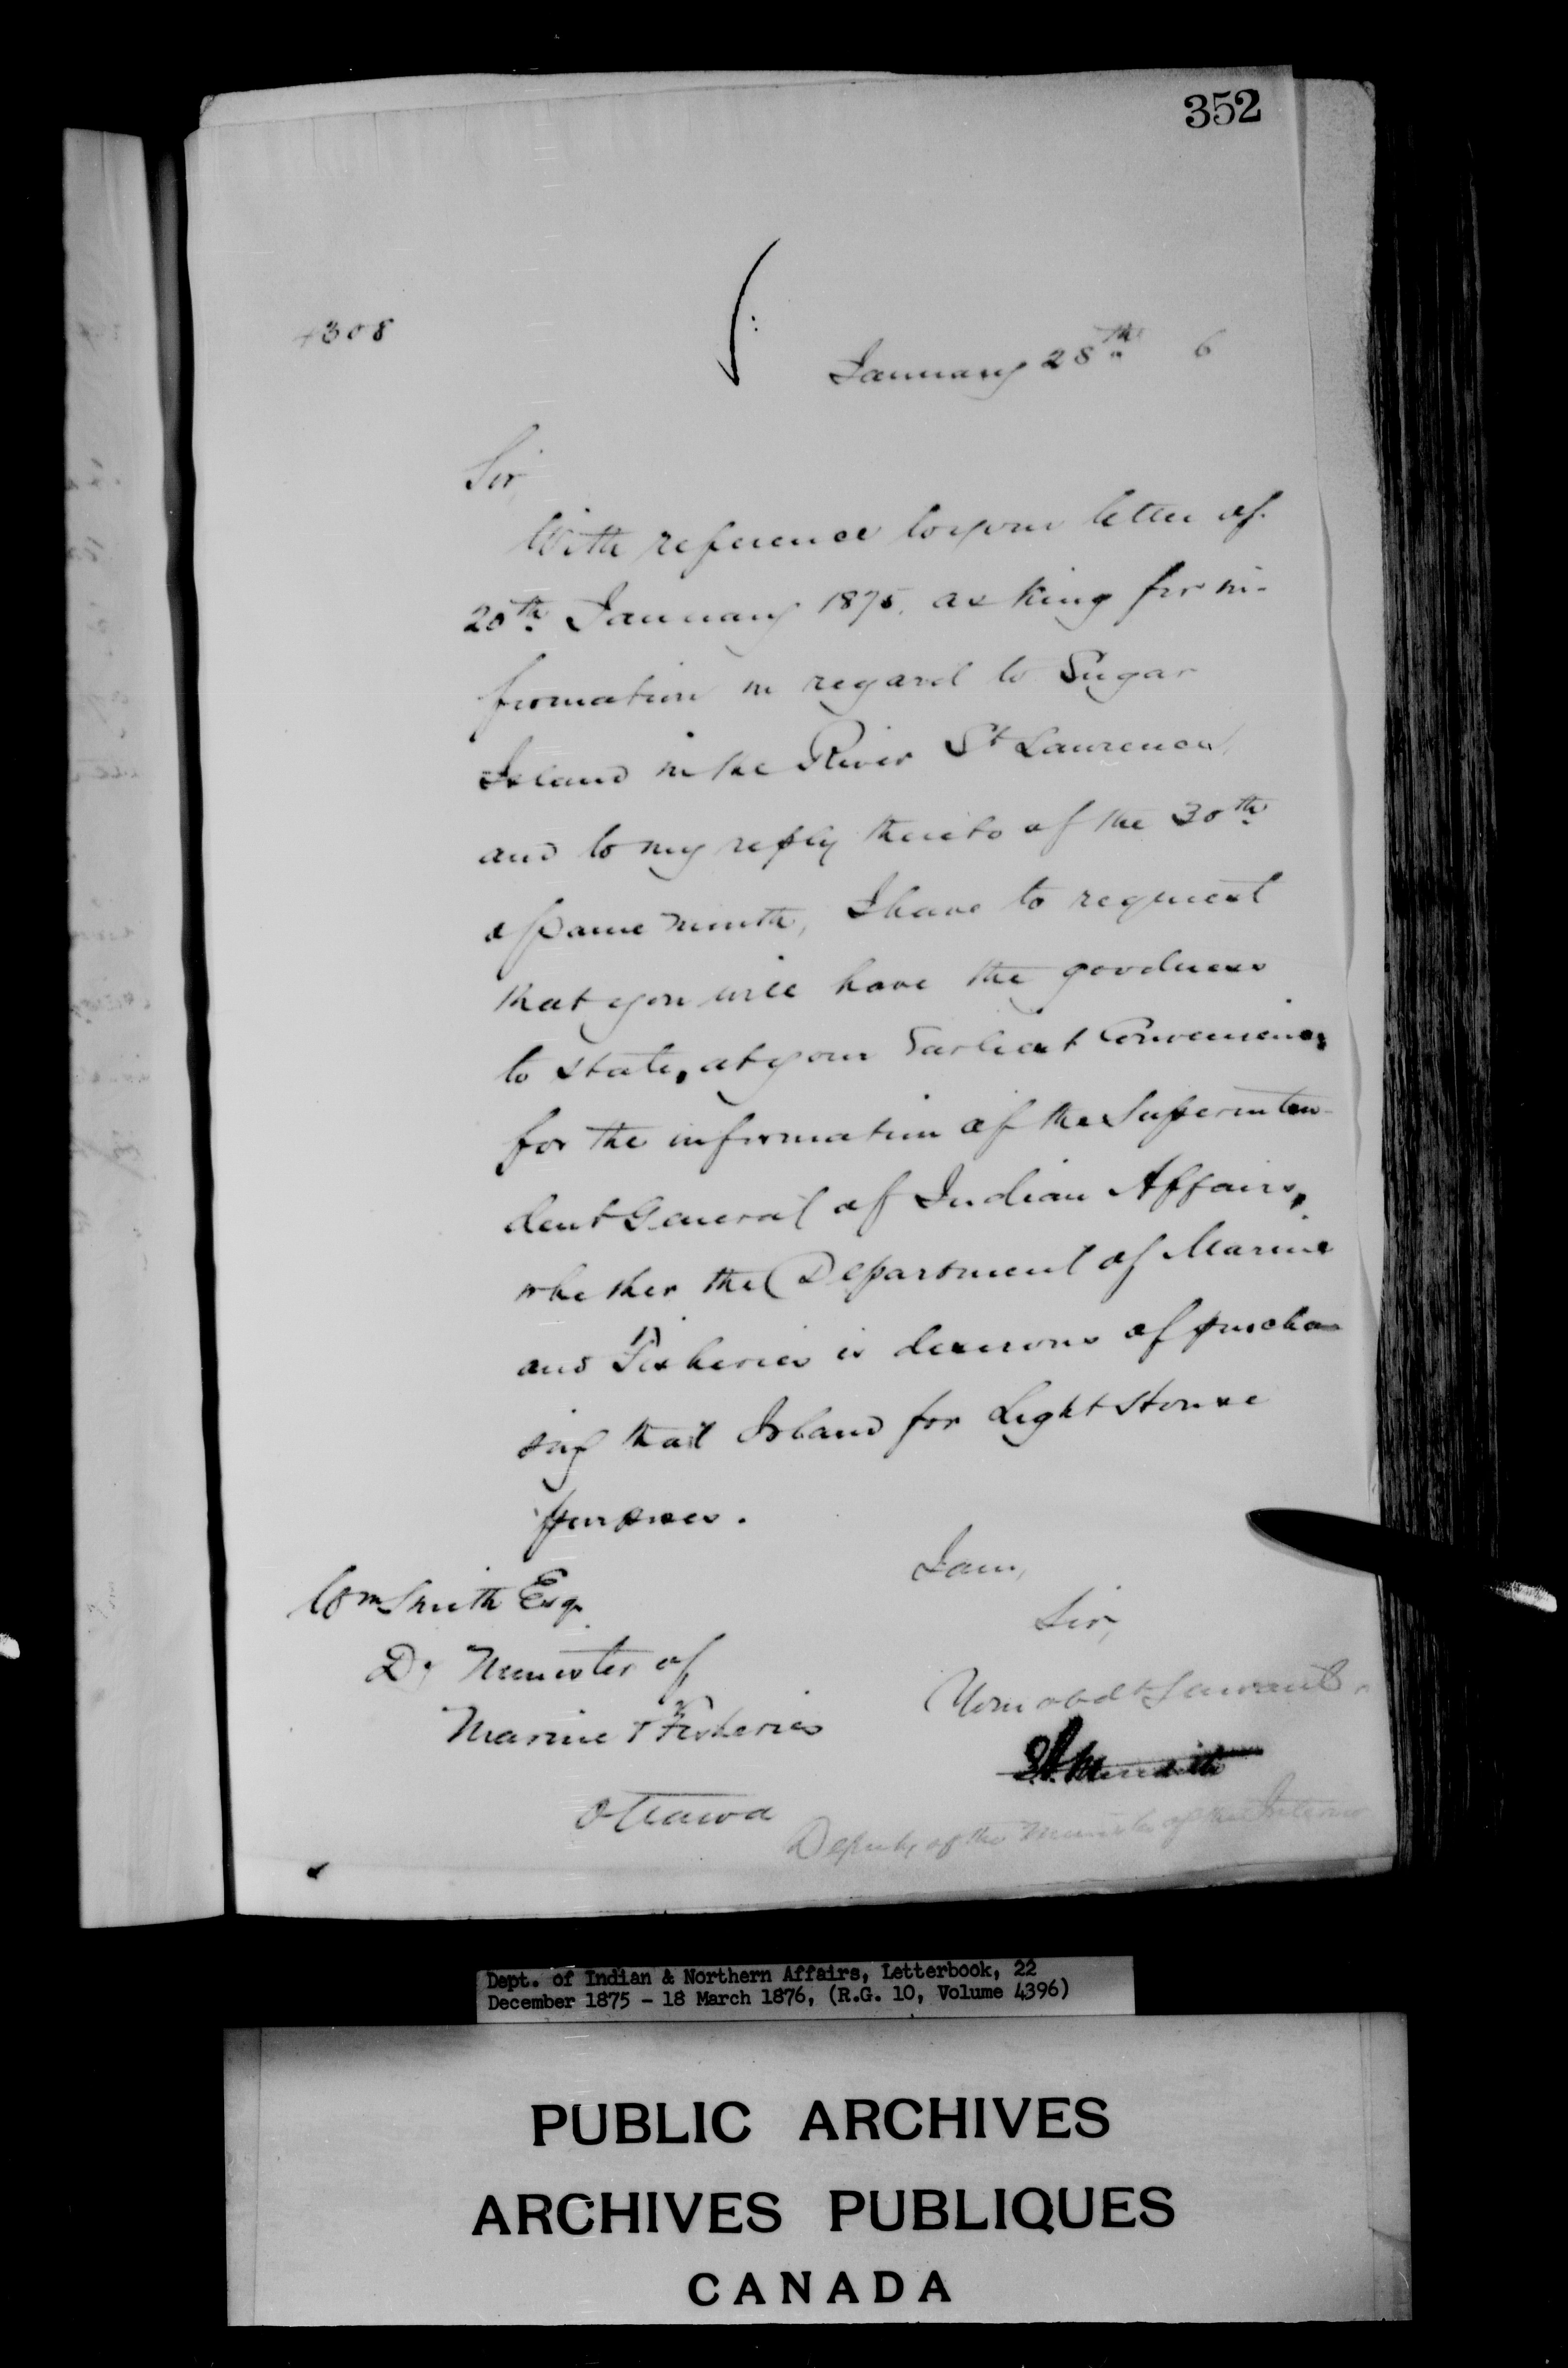 352
4308
January 28th 6
Sir
With reference to your letter of
20th January 1875, asking for in-
formation in regard to Sugar
Island in the River St Lawrence,
and to my reply thereto of the 30th
of same month, I have to request
that you will have the goodness
to state, at your Earliest Convenience,
for the information of the Superinten-
dent General of Indian Affairs,
whether the Department of Marine
and Fisheries is desirous of purcha-
sing that Island for Light House
purposes.
I am,
Sir,
Your obdt Servant
Wm Smith Esq
Dy Minister of
Marine & Fisheries
Ottawa
Deputy of the Minister of the Interior
Dept. of Indian & Northern Affairs, Letterbook, 22
December 1875 - 18 March 1876, (R.G. 10, Volume 4396)
PUBLIC ARCHIVES
ARCHIVES PUBLIQUES
CANADA